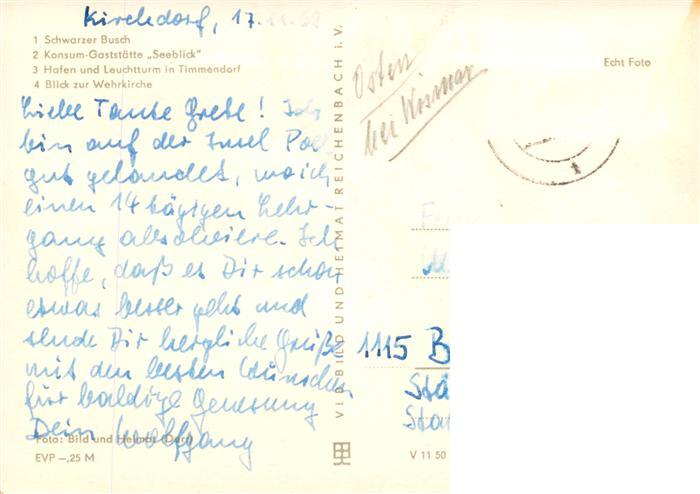 Kirchdorf, 17.11.69
1 Schwarzer Busch
2 Konsum-Gaststätte „Seeblick"
3 Hafen und Leuchtturm in Timmendorf
4 Blick zur Wehrkirche
Liebe Tante Grete! Ich
bin auf der Insel Poel
gut gelandet, wo ich
einen 14 tägigen Lehr-
gang absolviere. Ich
hoffe, daß es Dir schon
etwas besser geht und
sende Dir herzliche Grüße
mit den besten Wünschen
für baldige Genesung
Dein Wolfgang
Foto: Bild und Heimat (Dart)
EVP –,25 M
VEB BILD UND HEIMAT REICHENBACH I. V.
Osten
bei Wismar
Echt Foto
1115 B
Stä
Sta
V 11 50